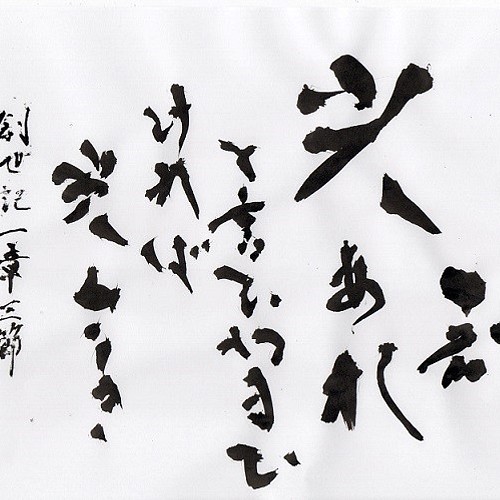 光あれ
と言ひたまひ
ければ
光ありき
創世記一章三節